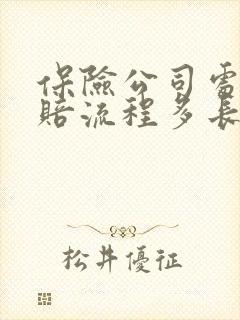 保險公司需
賠流程多長
松井優征